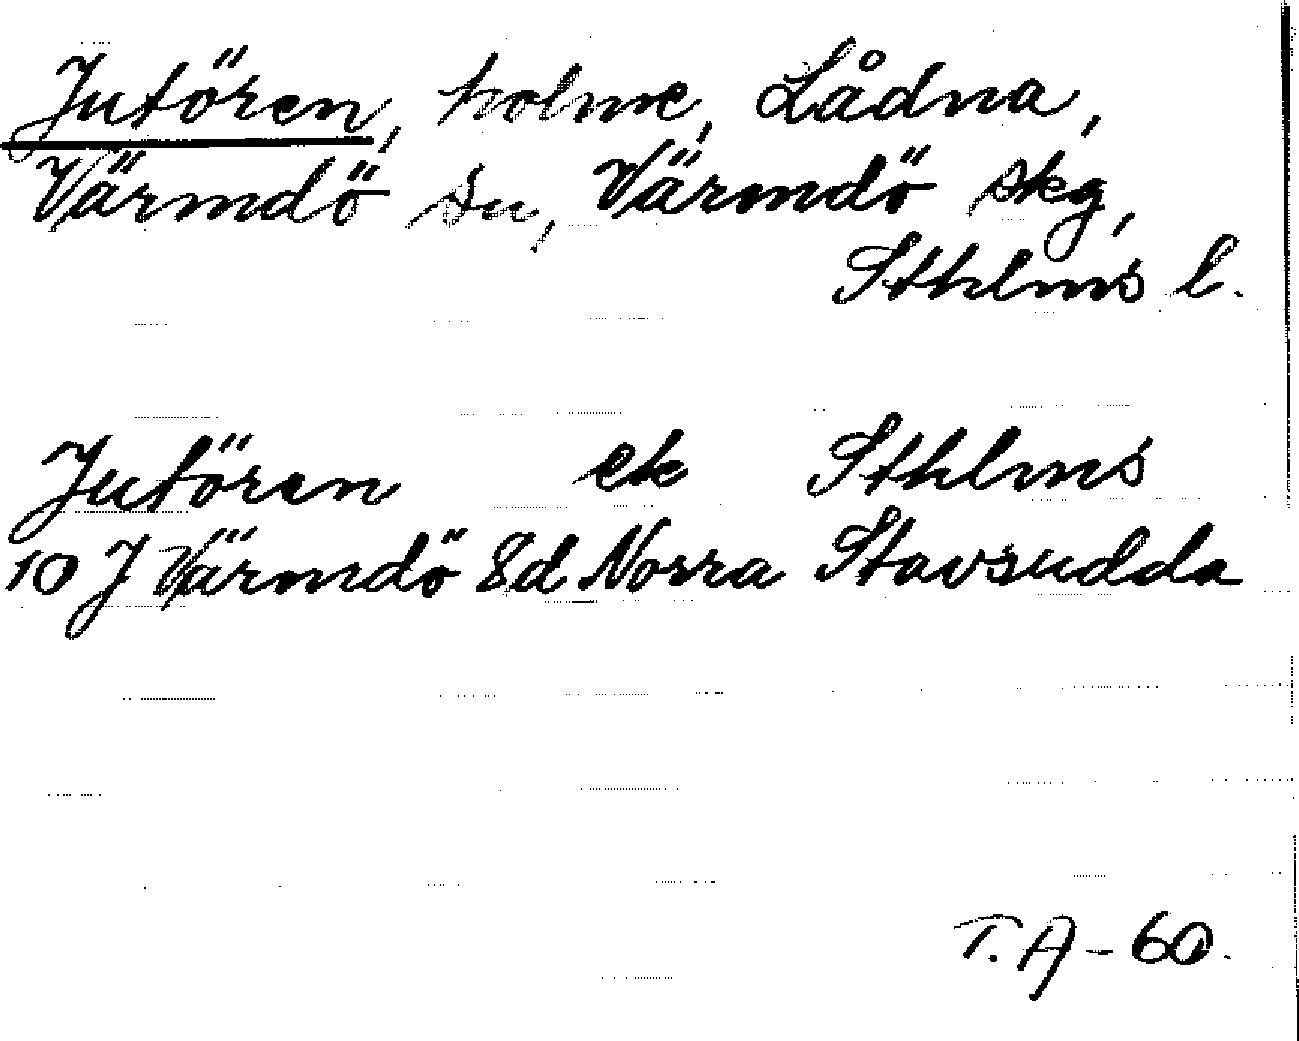 Jutören, holme, Lådna,
Värmdö sn, Värmdö skg,
Sthlms l.
Jutören ek Sthlms
10 J Värmdö 8d Norra Stavsudda
T. A - 60.